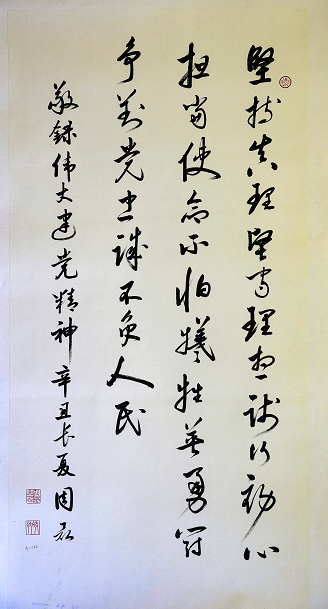 堅持真理堅守理想践行初心
担当使命不怕犧牲英勇鬥
争對党忠诚不负人民
敬録伟大建党精神 辛丑长夏周